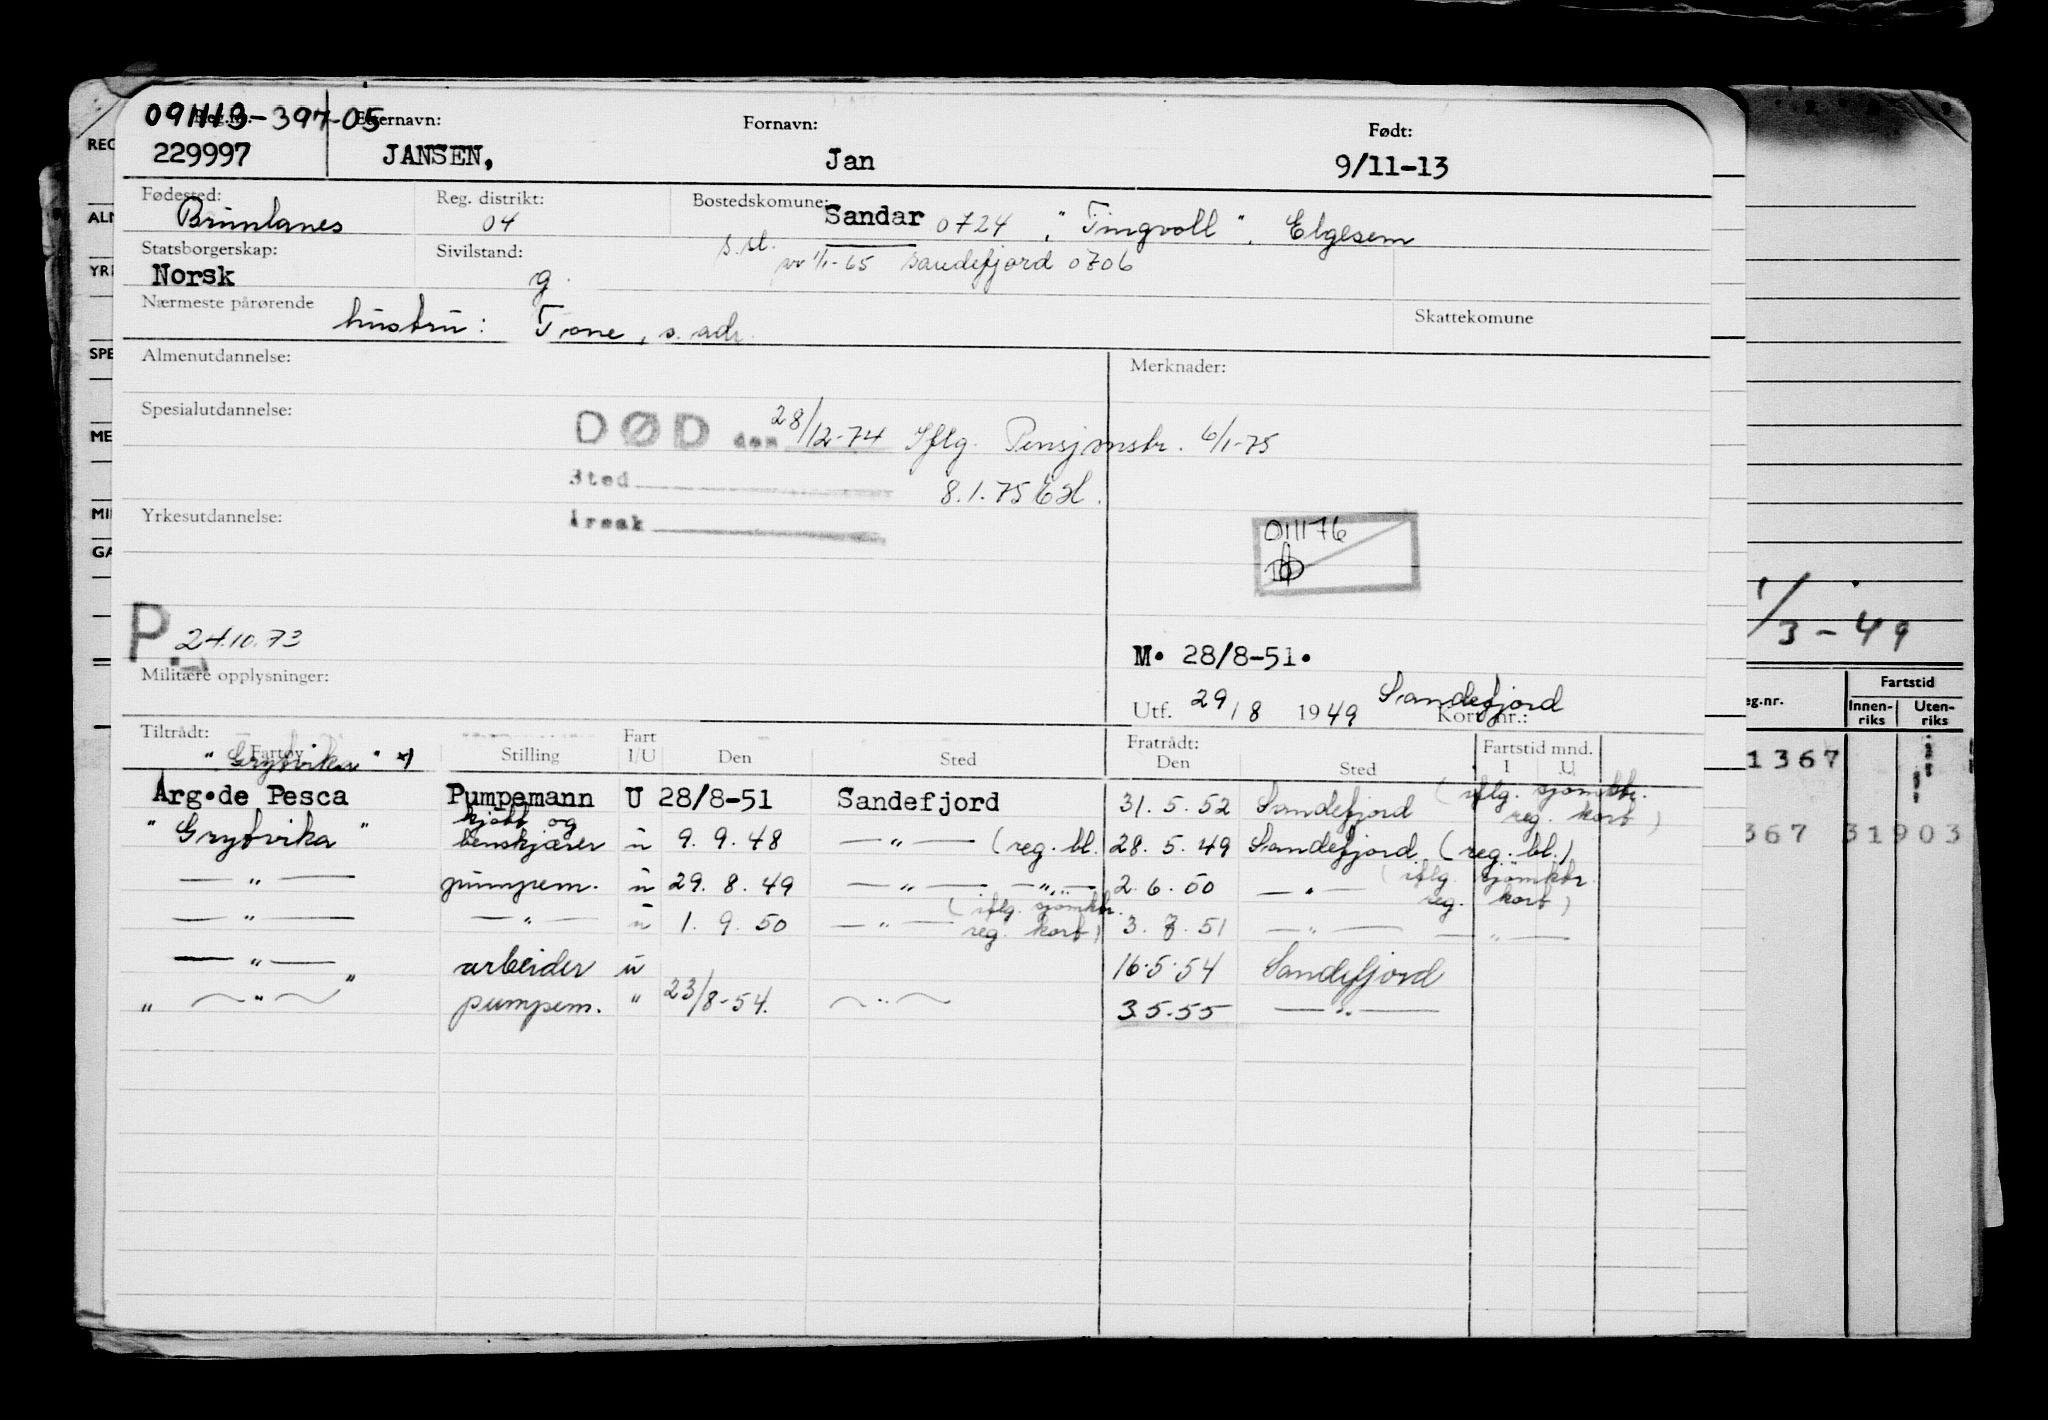 091113-397-05
Reg.nr. Etternavn: Fornavn: Født:
229997 JANSEN, Jan 9/11-13
Fødested: Reg. distrikt: Bostedskomune:
Brunlanes 04 Sandar 0724, "Tingvoll", Elgesem
Statsborgerskap: Sivilstand: s.st.
Norsk g. pr 1/1-65 Sandefjord 0706
Nærmeste pårørende Skattekomune
hustru: Tone, s. adr.
Almenutdannelse: Merknader:
Spesialutdannelse:
DØD den 28/12-74 Iflg. Pensjonstr. 6/1-75
Sted 8.1.75 EH.
Yrkesutdannelse: Årsak
011176
P. 24.10.73
M. 28/8-51.
Militære opplysninger:
Utf. 29/8 1949 Sandefjord Kort nr.:
Tiltrådt: Fart Fratrådt: Fartstid mnd.
Fartøy Stilling I/U Den Sted Den Sted I U
"Grytvika" *)
Arg.de Pesca Pumpemann U 28/8-51 Sandefjord 31.5.52 Sandefjord (iflg. sjømktr. reg. kort)
"Grytvika" kjøtt og benskjærer u 9.9.48 —"— (reg. bl.) 28.5.49 Sandefjord (reg. bl.)
—"— pumpem. u 29.8.49 —"— —"— 2.6.50 —"— (iflg. sjømktr. reg. kort)
—"— —"— u 1.9.50 —"— (iflg. sjømktr. reg. kort) 3.7.51 —"— —"—
—"— arbeider u 16.5.54 Sandefjord
" —"— " pumpem. " 23/8-54. —"— 3.5.55 —"—
REG
ALM
YR
SPE
ME
MI
GA
1/3-49
eg.nr. Fartstid
Innen-riks Uten-riks
1367
367 31903